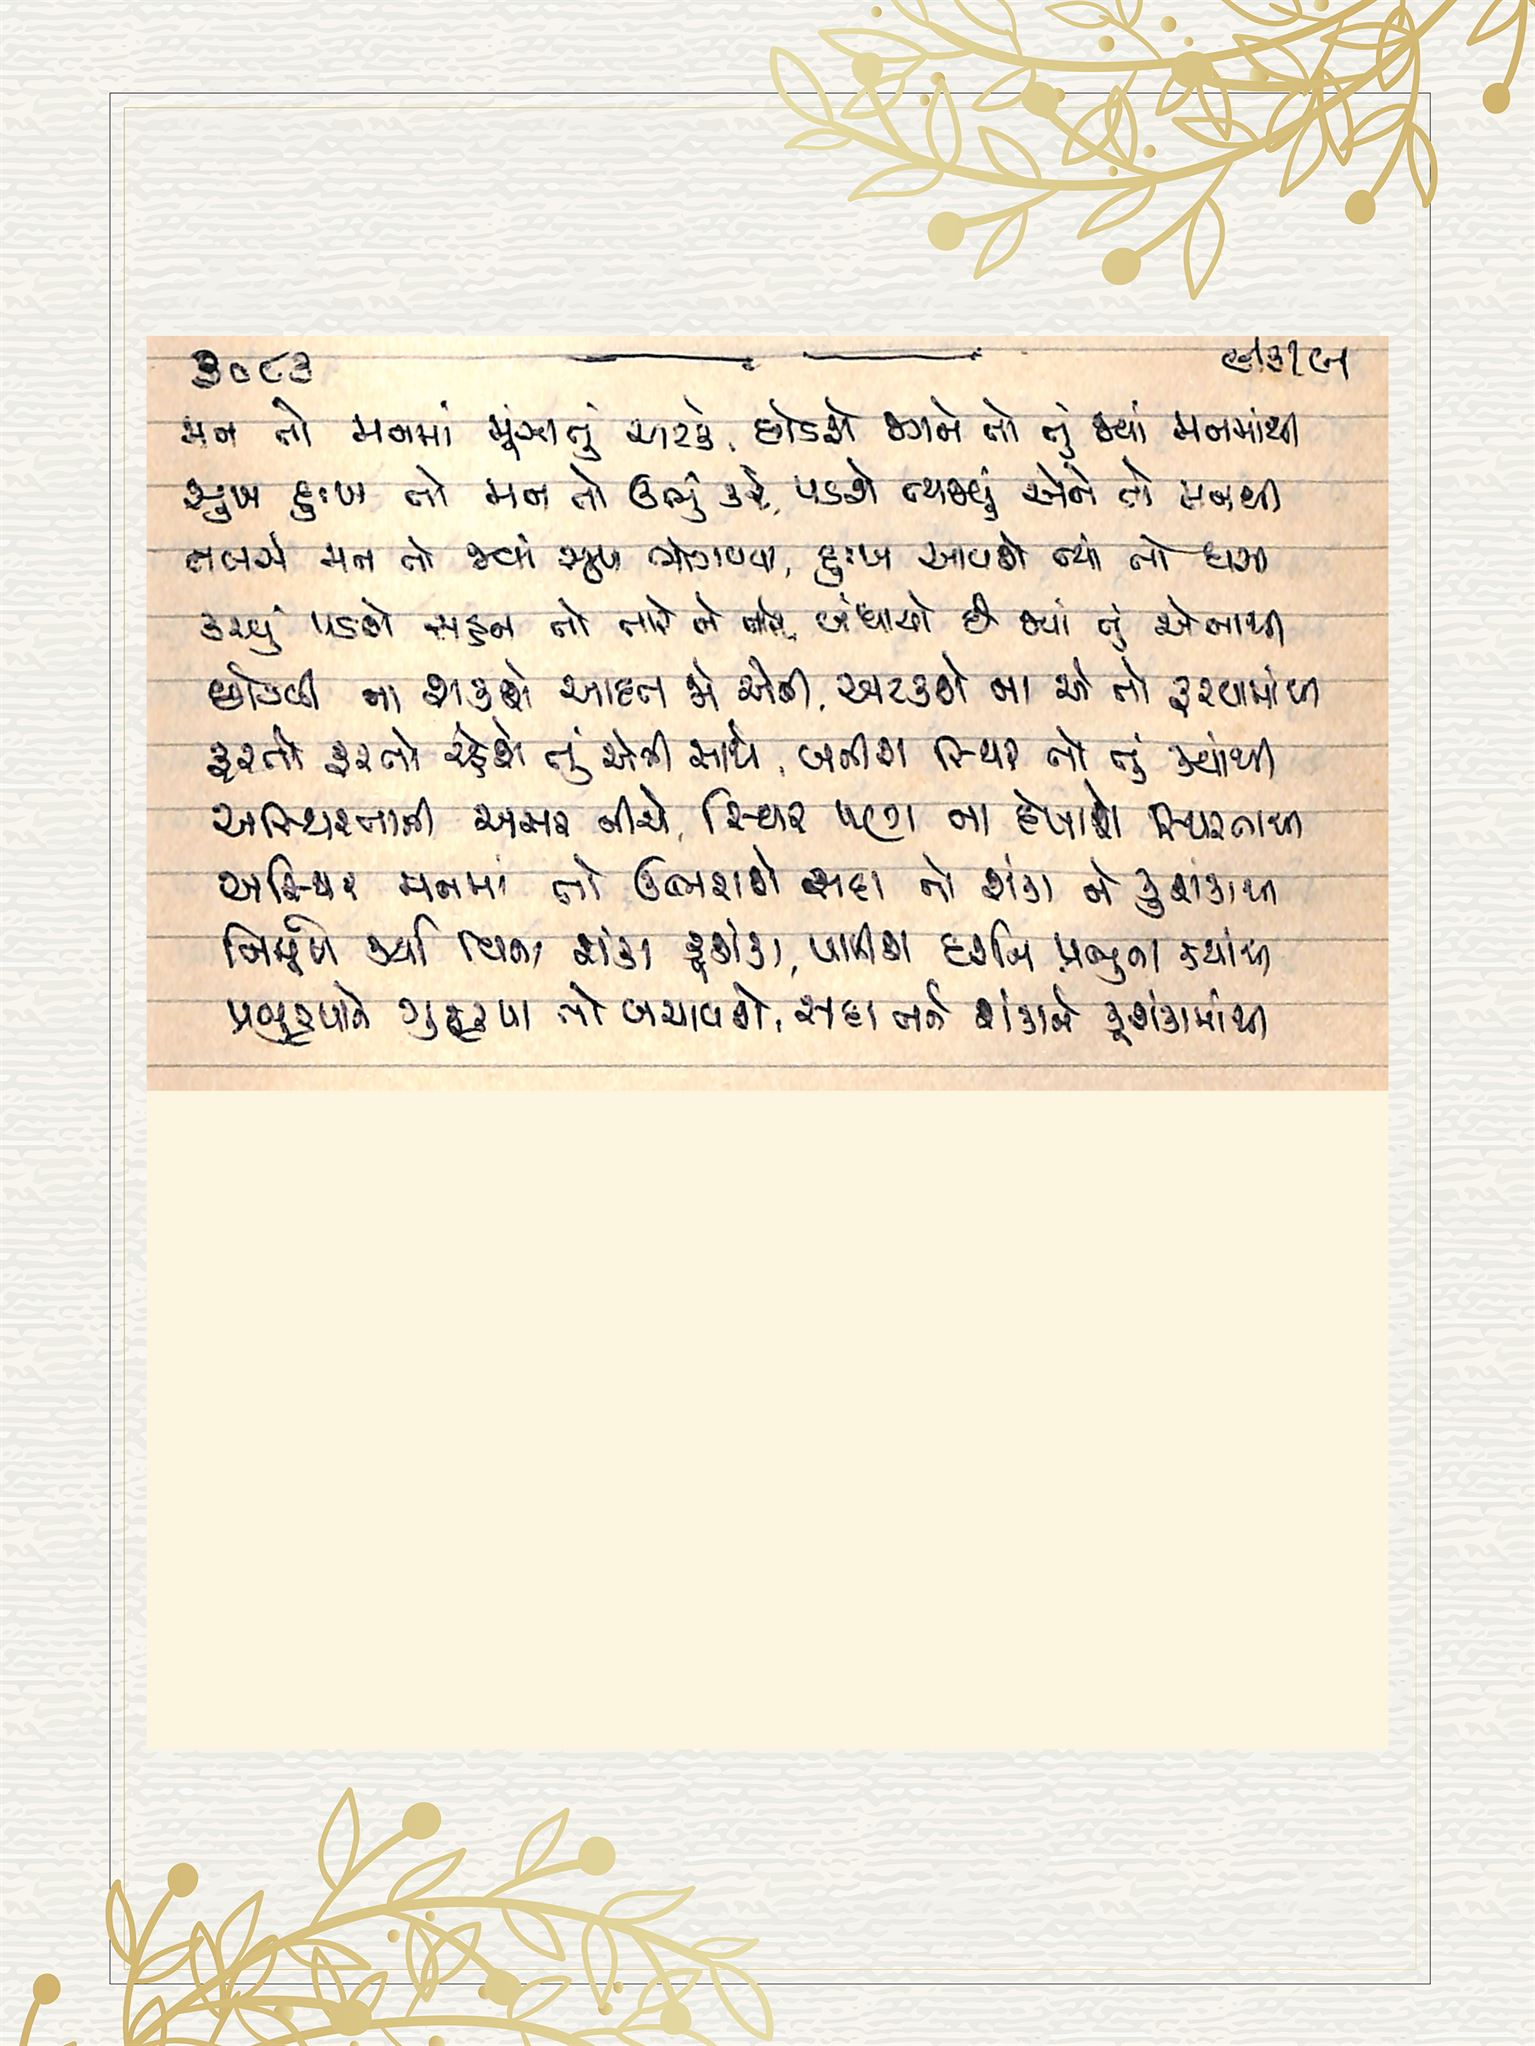 ૩૦૮૩
મન તો મનમાં મૂંઝાતું અટકે, છોડશે જીવને તો તું જ્યાં મનમાંથી
સુખ દુઃખ તો મન તો ઉભું કરે, પડશે ત્યજવું એને તો મનથી
તલસે મન તો જ્યાં સુખ ભોગવવા, દુઃખ આવશે ત્યાં તો ધસી
કરવું પડશે સહન તો તારે ને તારે, બંધાયો છે જ્યાં તું એનાથી
છોડવી ના શકશે આદત જો એની, અટકશે ના એ તો ફરવામાંથી
ફરતો ફરતો રહેશે તું એની સાથે, બનીશ સ્થિર તો તું ક્યાંથી
અસ્થિરતાની અસર નીચે, સ્થિર પણ ના દેખાશે સ્થિરતાથી
અસ્થિર મનમાં તો ઉભરાશે સદા તો શંકા ને કુશંકાથી
નિર્મૂળ કર્યા વિના શંકા કૂશંકા, પામીશ દર્શન પ્રભુના ક્યાંથી
પ્રભુકૃપાને ગુરુકૃપા તો બચાવશે, સદા તને શંકાને કૂશંકામાંથી